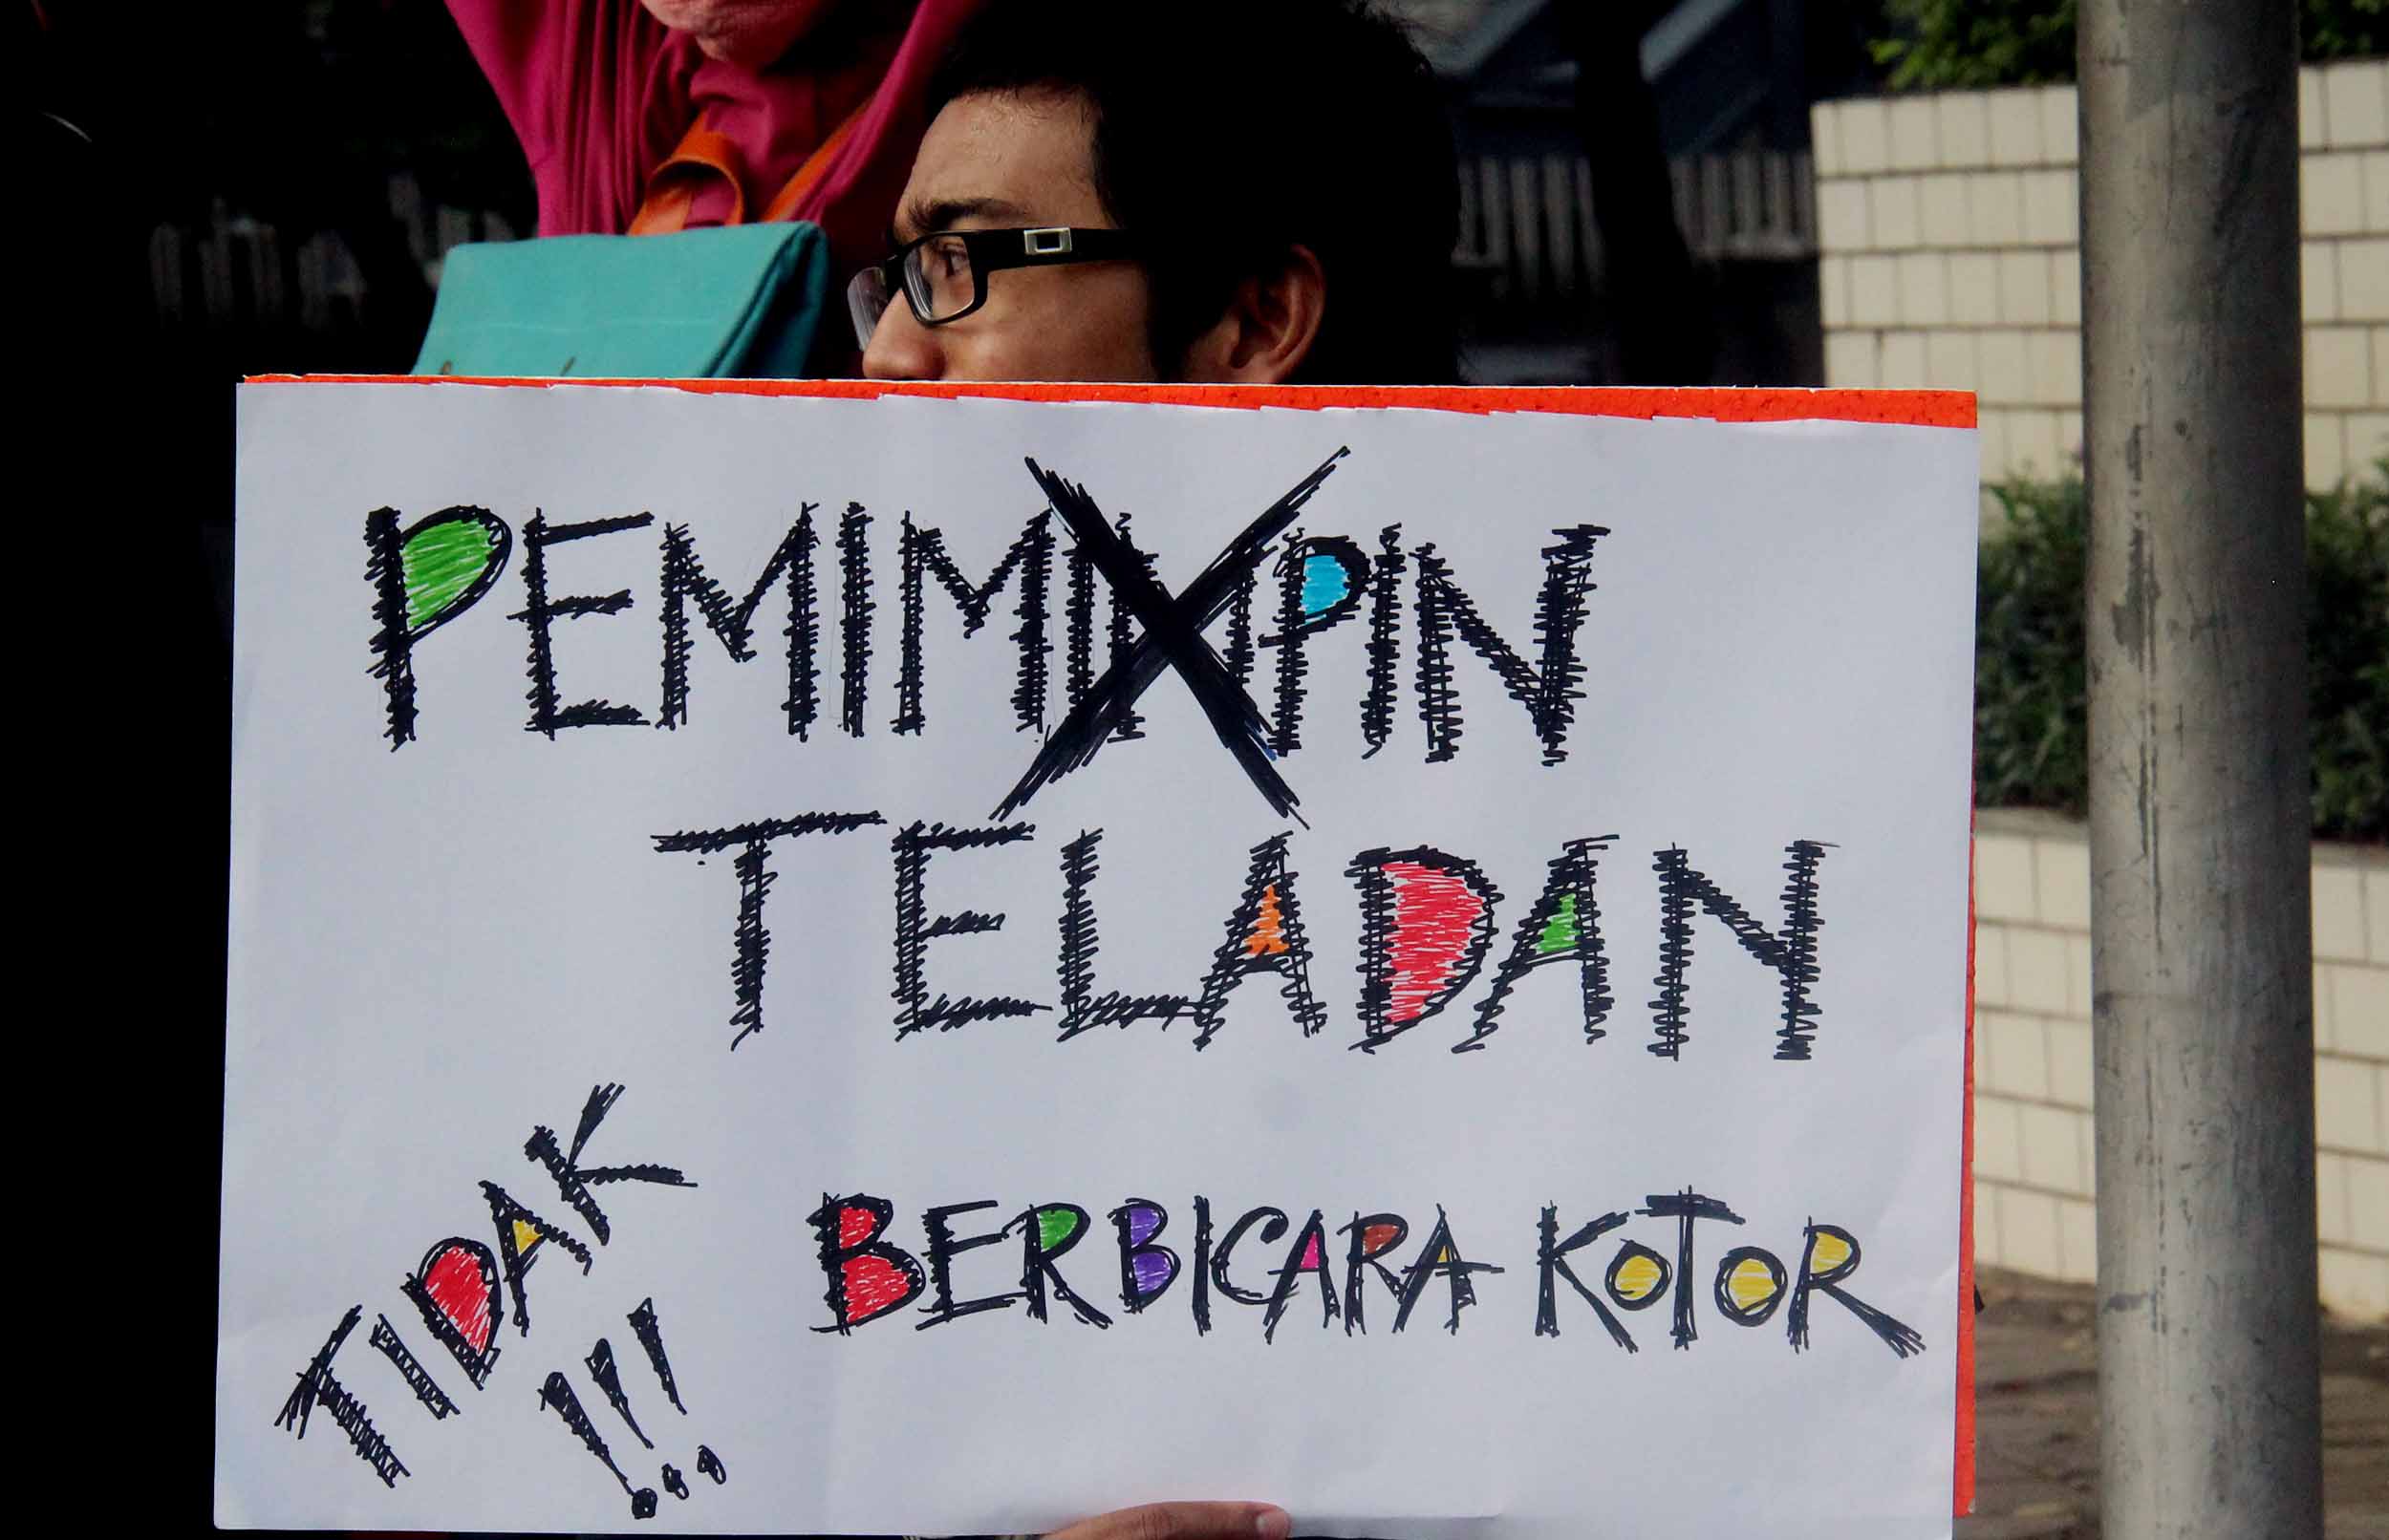 PEMIMPIN
TELADAN
TIDAK !!!
BERBICARA KOTOR